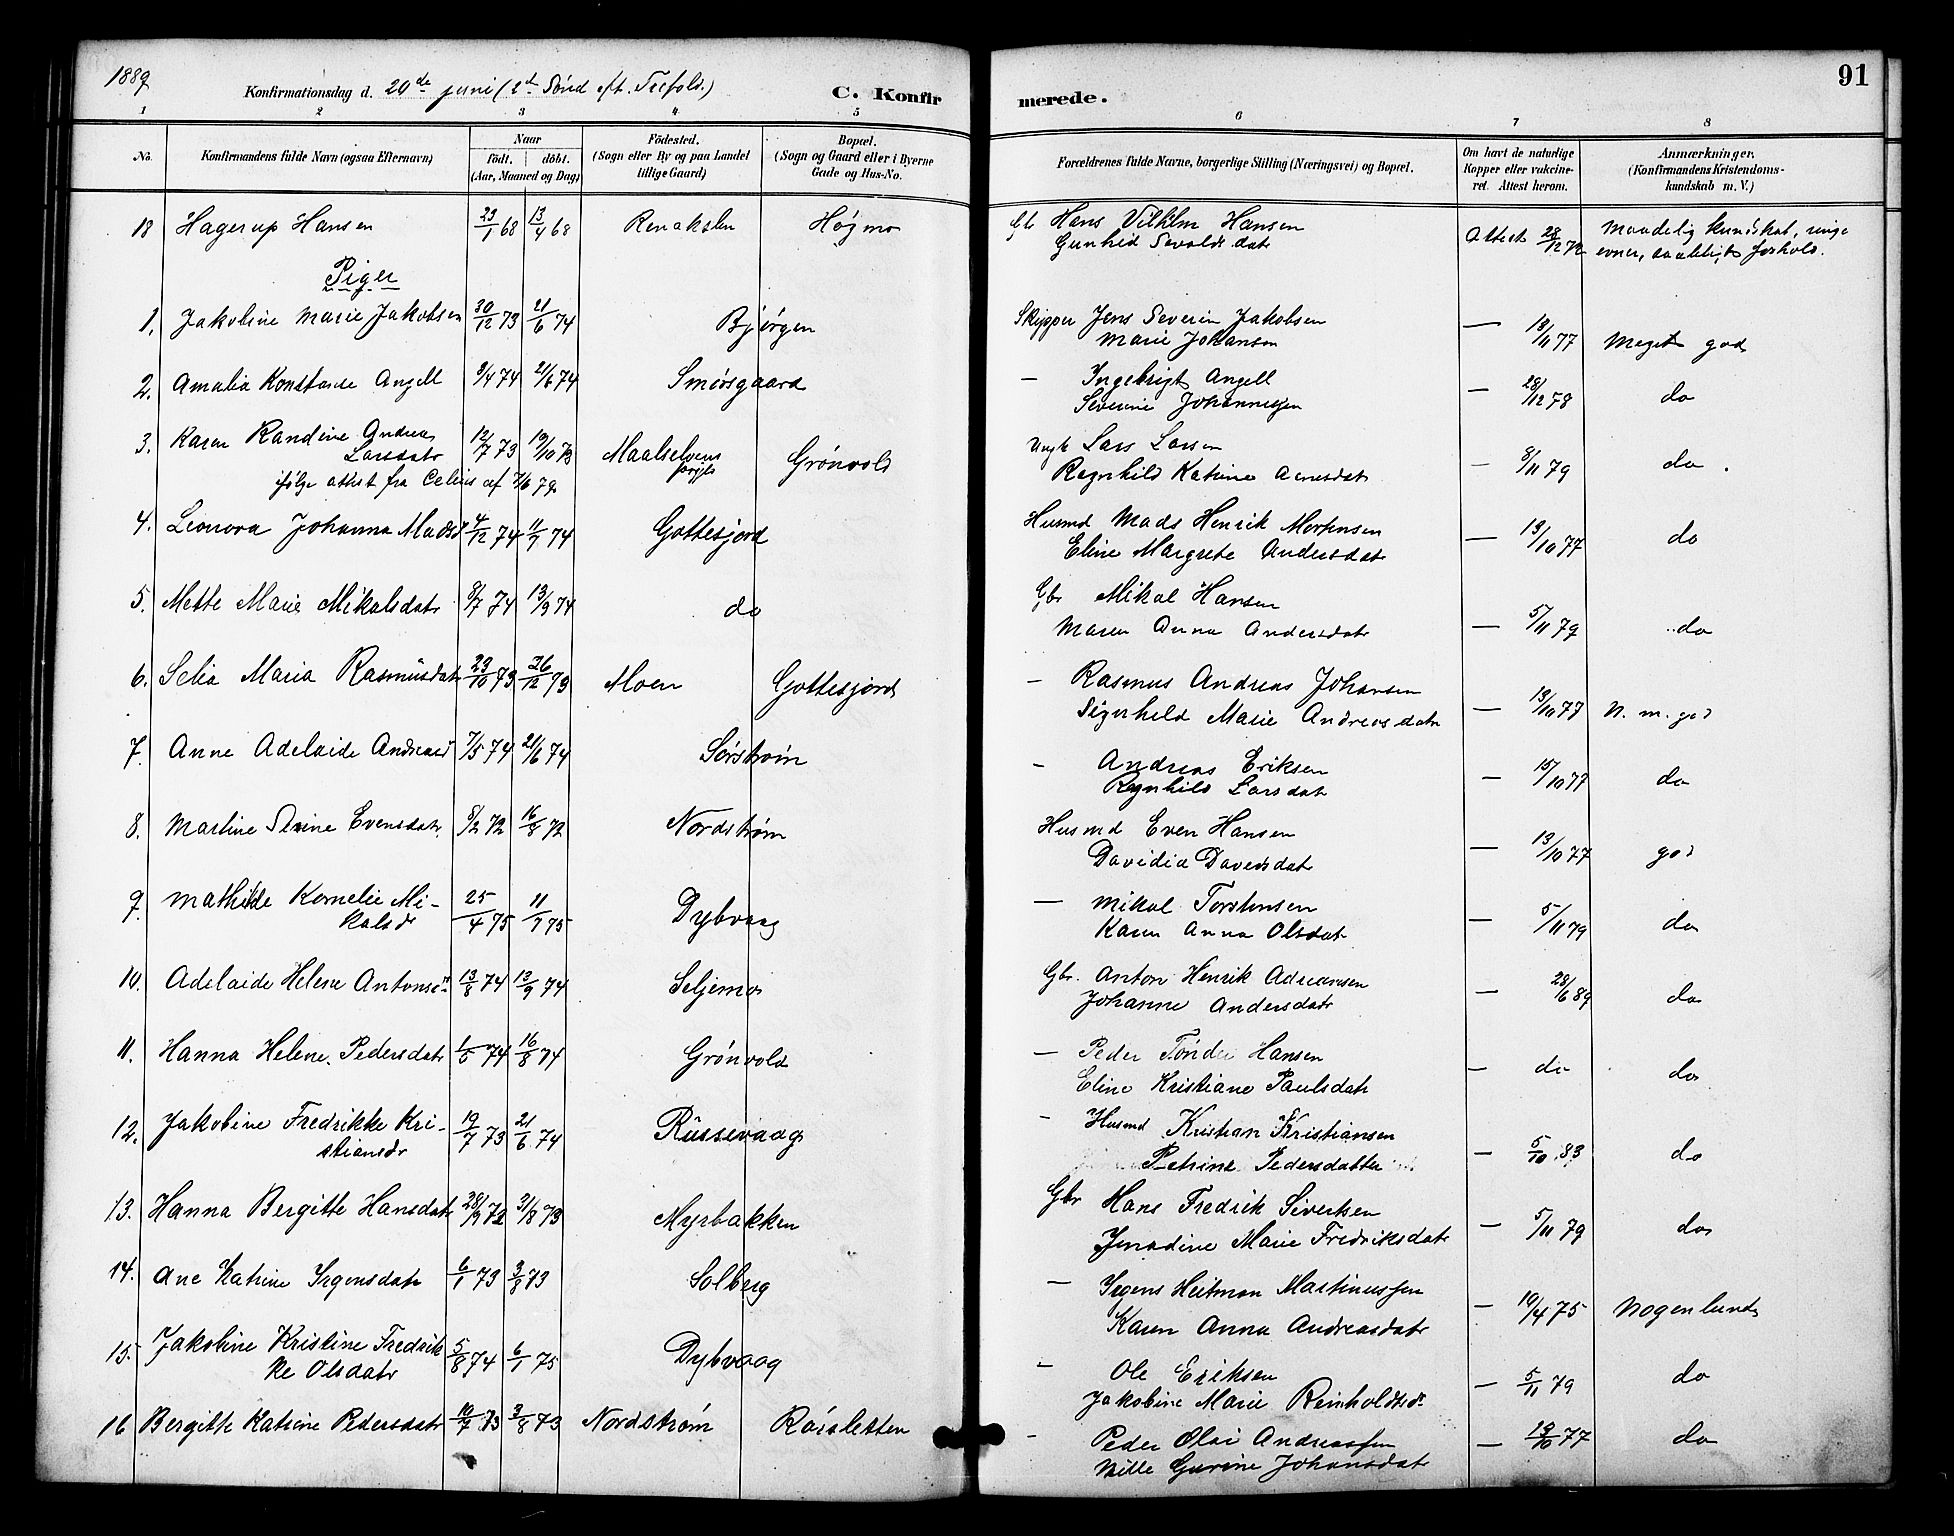 1889 Konfirmationsdag d. 29de juni (2d Sønd eft. Trefold.) C. Konfirmerede. 91
1 2 3 4 5 6 7 8
No. Konfirmandens fulde Navn (ogsaa Efternavn) Naar födt. döbt. (Aar, Maaned og Dag) Födested. (Sogn eller By og paa Landet tillige Gaard) Bopæl. (Sogn og Gaard eller i Byerne Gade og Hus-No. Forældrenes fulde Navne, borgerlige Stilling (Næringsvei) og Bopæl. Om havt de naturlige Kopper eller vakcineret. Attest herom. Anmærkninger. (Konfirmandens Kristendomskundskab m. V.)
18 Hagerup Hansen 23/1 68 13/4 68 Høgmo Gbr Hans Vilhelm Hansen Attest 28/12 72 Maadelig kundskab, ringe
Gunhild Sevaldsdat evner, forhold.
Piger
1. Jakobine Marie Jakobsen 30/12 73 21/6 74 Bjørgen Skipper Jens Severin Jakobsen — 13/11 77 Meget god
Marie Johansen
2. Amalia Konstanse Angell 9/4 74 21/6 74 Smørsgaard — Ingebrigt Angell — 28/12 78 do
Severine Johannesen
3. Karen Randine Andrea 12/7 73 19/10 73 Maalselvens Grønvold Lars Larsen — 8/11 79 do.
Larsdatr Ragnhild Katrine
ifølge attest fra af 7/6 79
4. Leonora Johanna Madsd 4/12 74 11/7 74 Gottesjord Husmd Mads Henrik Mortensen — 13/10 77 do
Eline Margrete Andersdatr
5. Mette Marie Mikalsdatr 8/7 74 13/9 74 do Gbr Mikal Hansen — 5/11 79 do
Maren Anna Andersdatr
6. Selia Maria Rasmusdatr 23/10 73 26/12 73 Moen Gottesjord — Rasmus Andreas Johansen — 13/10 77 N. m. god
Marie Andreasdatr
7. Anne Adelaide Andreasd 7/5 74 21/6 74 Sørstrøm — Andreas Eriksen — 15/10 77 do
Ragnhild Larsdat
8. Martine Evensdatr. 8/2 72 16/8 72 Nordstrøm Husmd Even Hansen — 13/10 77 god
Davidia Davidsdat
9. Mathilde Kornelie Mi- 25/4 75 11/7 75 Dybvaag — Mikal Torstensen — 5/11 79 do
kalsdr Karen Anna Olsdatr
10. Adelaide Helene Antonsen 13/8 74 13/9 74 Seljemo Gbr. Anton Henrik Adreansen — 28/6 89 do
Johanne Andersdatr
11. Hanna Helene Pedersdatr 1/5 74 16/8 74 Grønvold — Peder Tønder Hansen — do do
Eline Kristiane Paulsdatr
12. Jakobine Fredrikke Kri- 19/7 73 21/6 74 Russevaag — Husmd Kristian Kristiansen — 5/10 83 do
stiansdr Petrine Pedersdatter
13. Hanna Bergitte Hansdatr 28/9 72 31/8 73 Myrbakken Gbr Hans Fredrik Sivertsen — 5/11 79 do
Marie Fredriksdatr
14. Ane Katrine Irgensdatr 6/1 73 3/8 73 Solberg — Irgens Heitman Martinussen — 19/4 75 Nogenlunde
Karen Anna Andreasdatr
15. Jakobine Kristine Fredrik- 5/8 74 6/1 75 Dybvaag — Ole Eriksen — 5/11 79 do
ke Olsdatr Jakobine Marie Reinholdtsdr
16 Bergitte Katrine Pedersdatr 19/7 73 3/8 73 Nordstrøm — Peder Olai Andreassen — 77 do
Gurine Johansdatr